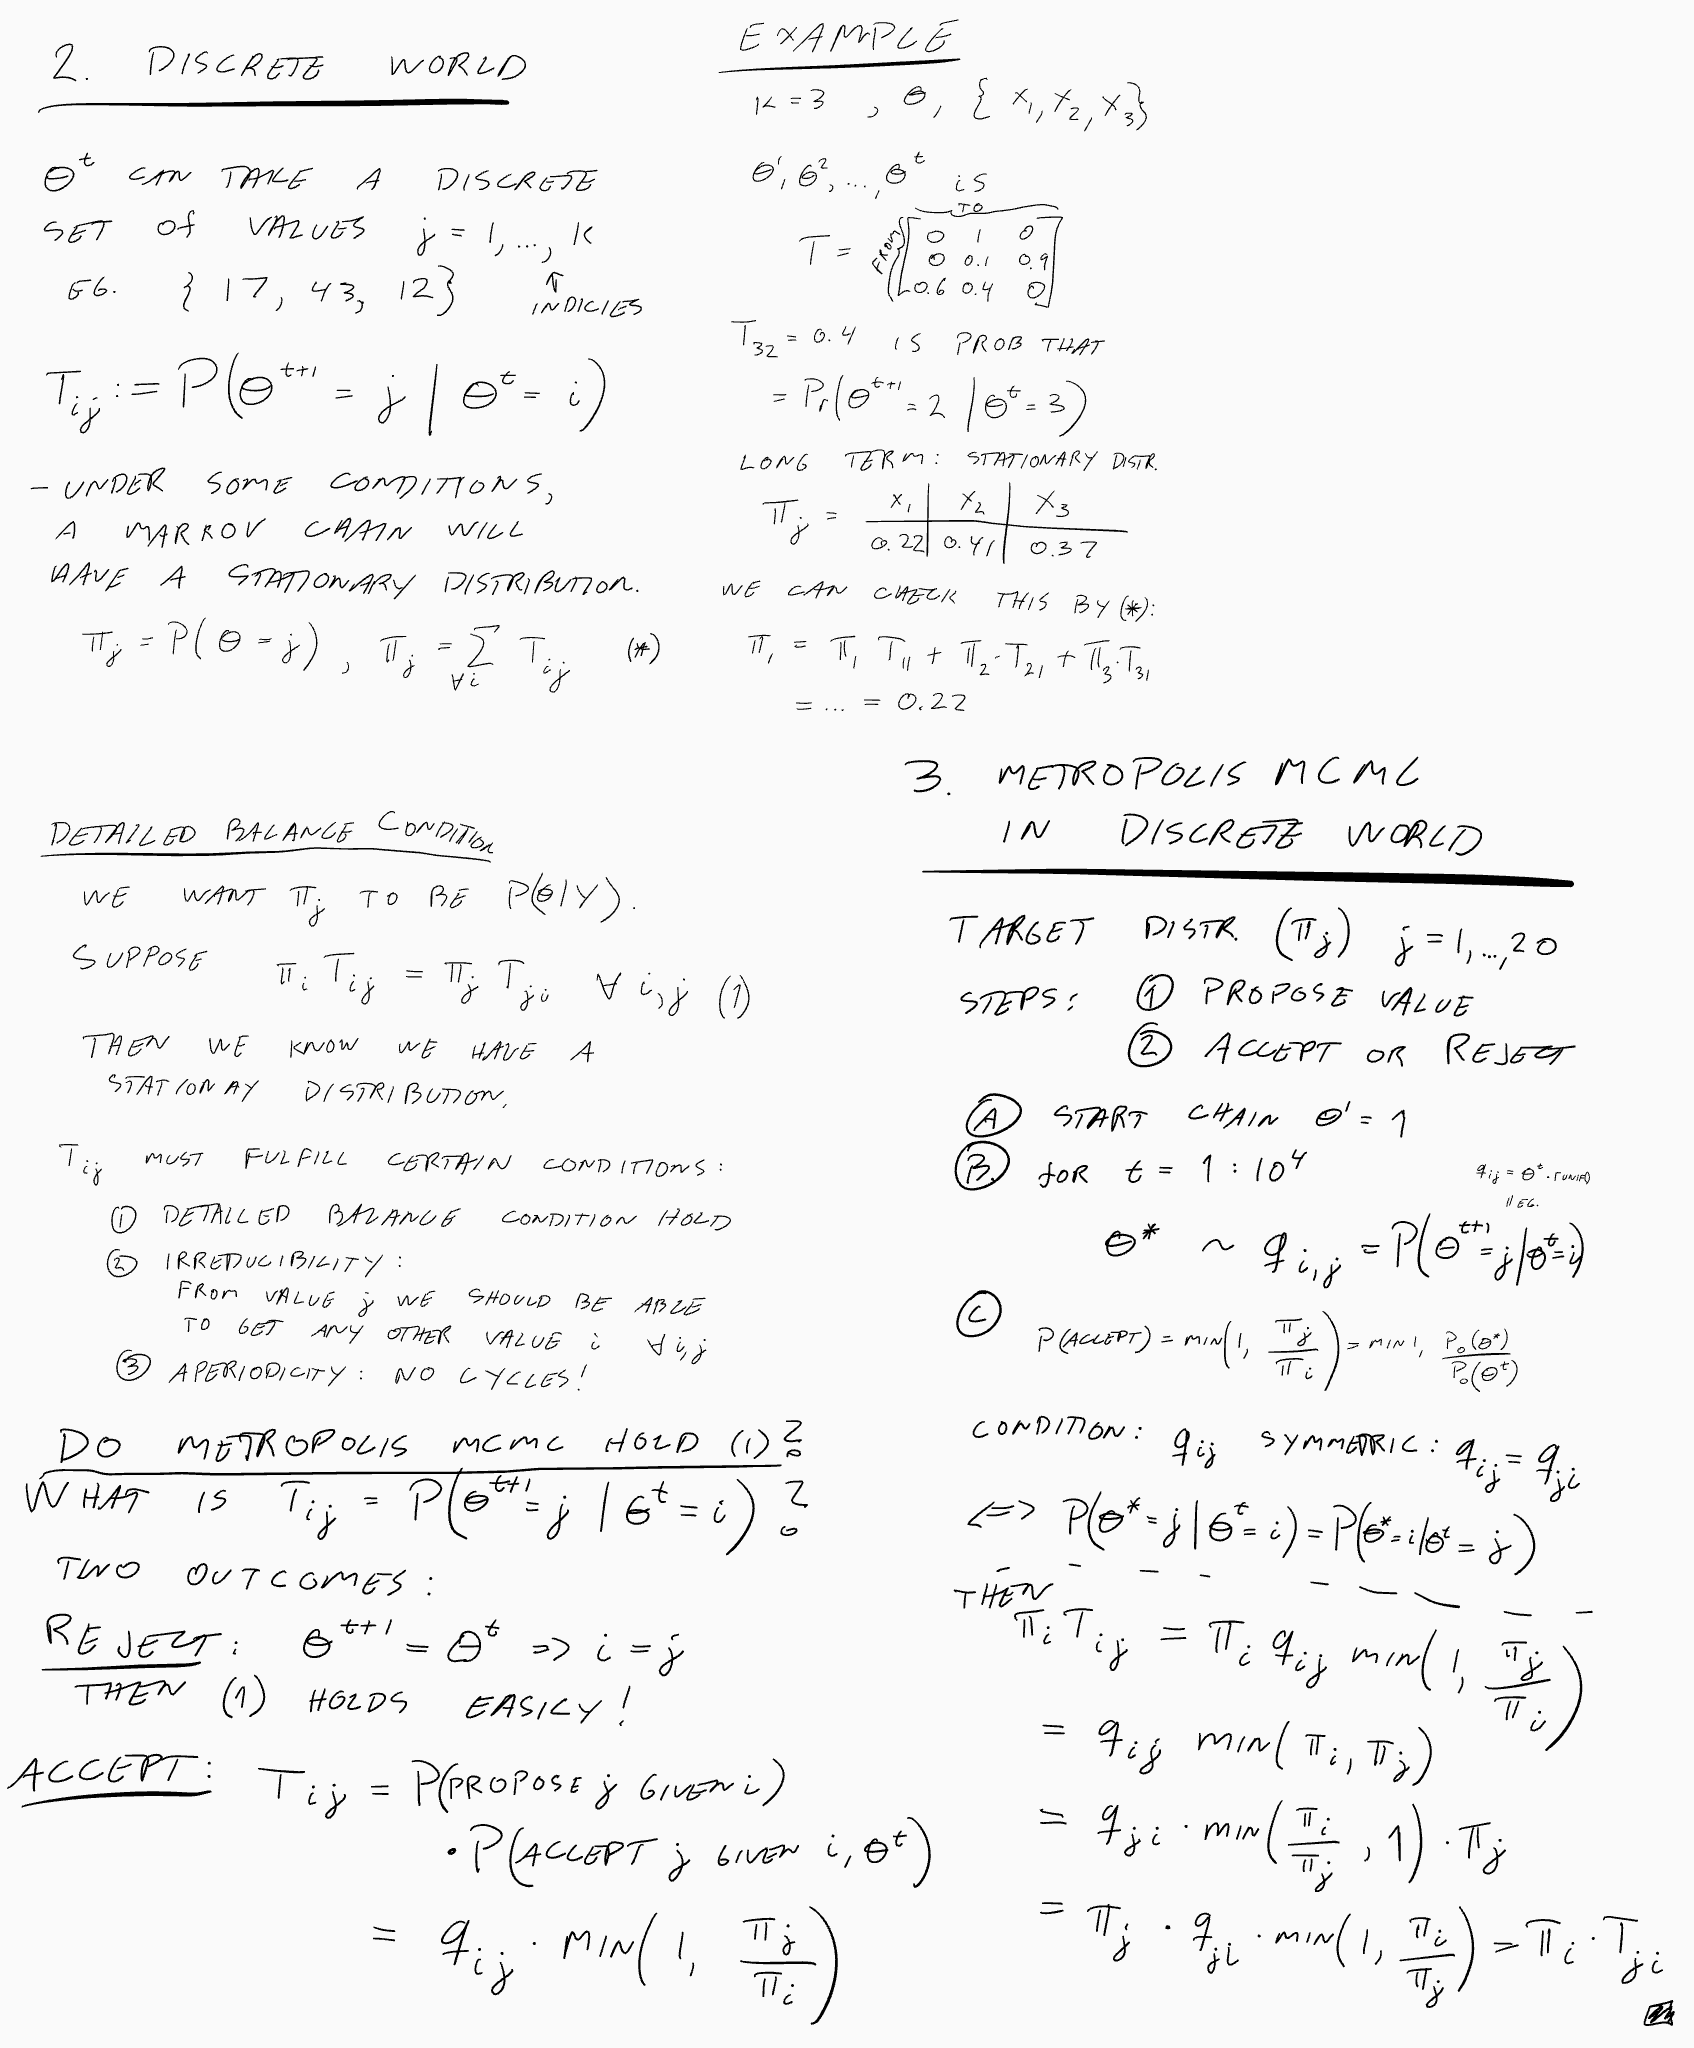 2. DISCRETE WORLD
θ^t CAN TAKE A DISCRETE
SET OF VALUES j = 1, ..., K
EG. {17, 43, 12} ↑ INDICIES
T_ij := P(θ^{t+1} = j | θ^t = i)
- UNDER SOME CONDITIONS,
A MARKOV CHAIN WILL
HAVE A STATIONARY DISTRIBUTION.
π_j = P(θ = j), π_j = Σ_{∀i} T_ij (*)
EXAMPLE
K = 3, θ, {x_1, x_2, x_3}
θ^1, θ^2, ..., θ^t is
TO
T = FROM [0 1 0
0 0.1 0.9
0.6 0.4 0]
T_32 = 0.4 IS PROB THAT
= Pr(θ^{t+1} = 2 | θ^t = 3)
LONG TERM: STATIONARY DISTR.
π_j = x_1 | x_2 | x_3
0.22 | 0.41 | 0.37
WE CAN CHECK THIS BY (*):
π_1 = π_1 T_11 + π_2 · T_21 + π_3 · T_31
= ... = 0.22
DETAILED BALANCE CONDITION
WE WANT π_j TO BE P(θ|Y).
SUPPOSE π_i T_ij = π_j T_ji ∀ i,j (1)
THEN WE KNOW WE HAVE A
STATIONAY DISTRIBUTION.
T_ij MUST FULFILL CERTAIN CONDITIONS:
① DETAILED BALANCE CONDITION HOLD
② IRREDUCIBILITY:
FROM VALUE j WE SHOULD BE ABLE
TO GET ANY OTHER VALUE i ∀ i,j
③ APERIODICITY: NO CYCLES!
DO METROPOLIS MCMC HOLD (1)?
WHAT IS T_ij = P(θ^{t+1} = j | θ^t = i)?
TWO OUTCOMES:
REJECT: θ^{t+1} = θ^t => i = j
THEN (1) HOLDS EASILY!
ACCEPT: T_ij = P(PROPOSE j GIVEN i)
· P(ACCEPT j GIVEN i, θ^t)
= q_ij · MIN(1, π_j / π_i)
3. METROPOLIS MCMC
IN DISCRETE WORLD
TARGET DISTR. (π_j) j = 1, ..., 20
STEPS: ① PROPOSE VALUE
② ACCEPT OR REJECT
Ⓐ START CHAIN θ^1 = 1
Ⓑ FOR t = 1 : 10^4
q_ij = θ^t · runif()
// EG.
θ* ~ q_{i,j} = P(θ^{t+1} = j | θ^t = i)
Ⓒ P(ACCEPT) = MIN(1, π_j / π_i) = MIN 1, P_0(θ*) / P_0(θ^t)
CONDITION: q_ij SYMMETRIC: q_ij = q_ji
<=> P(θ* = j | θ^t = i) = P(θ* = i | θ^t = j)
THEN
π_i T_ij = π_i q_ij MIN(1, π_j / π_i)
= q_ij MIN(π_i, π_j)
= q_ji · MIN(π_i / π_j, 1) · π_j
= π_j · q_ji · MIN(1, π_i / π_j) = π_i · T_ji